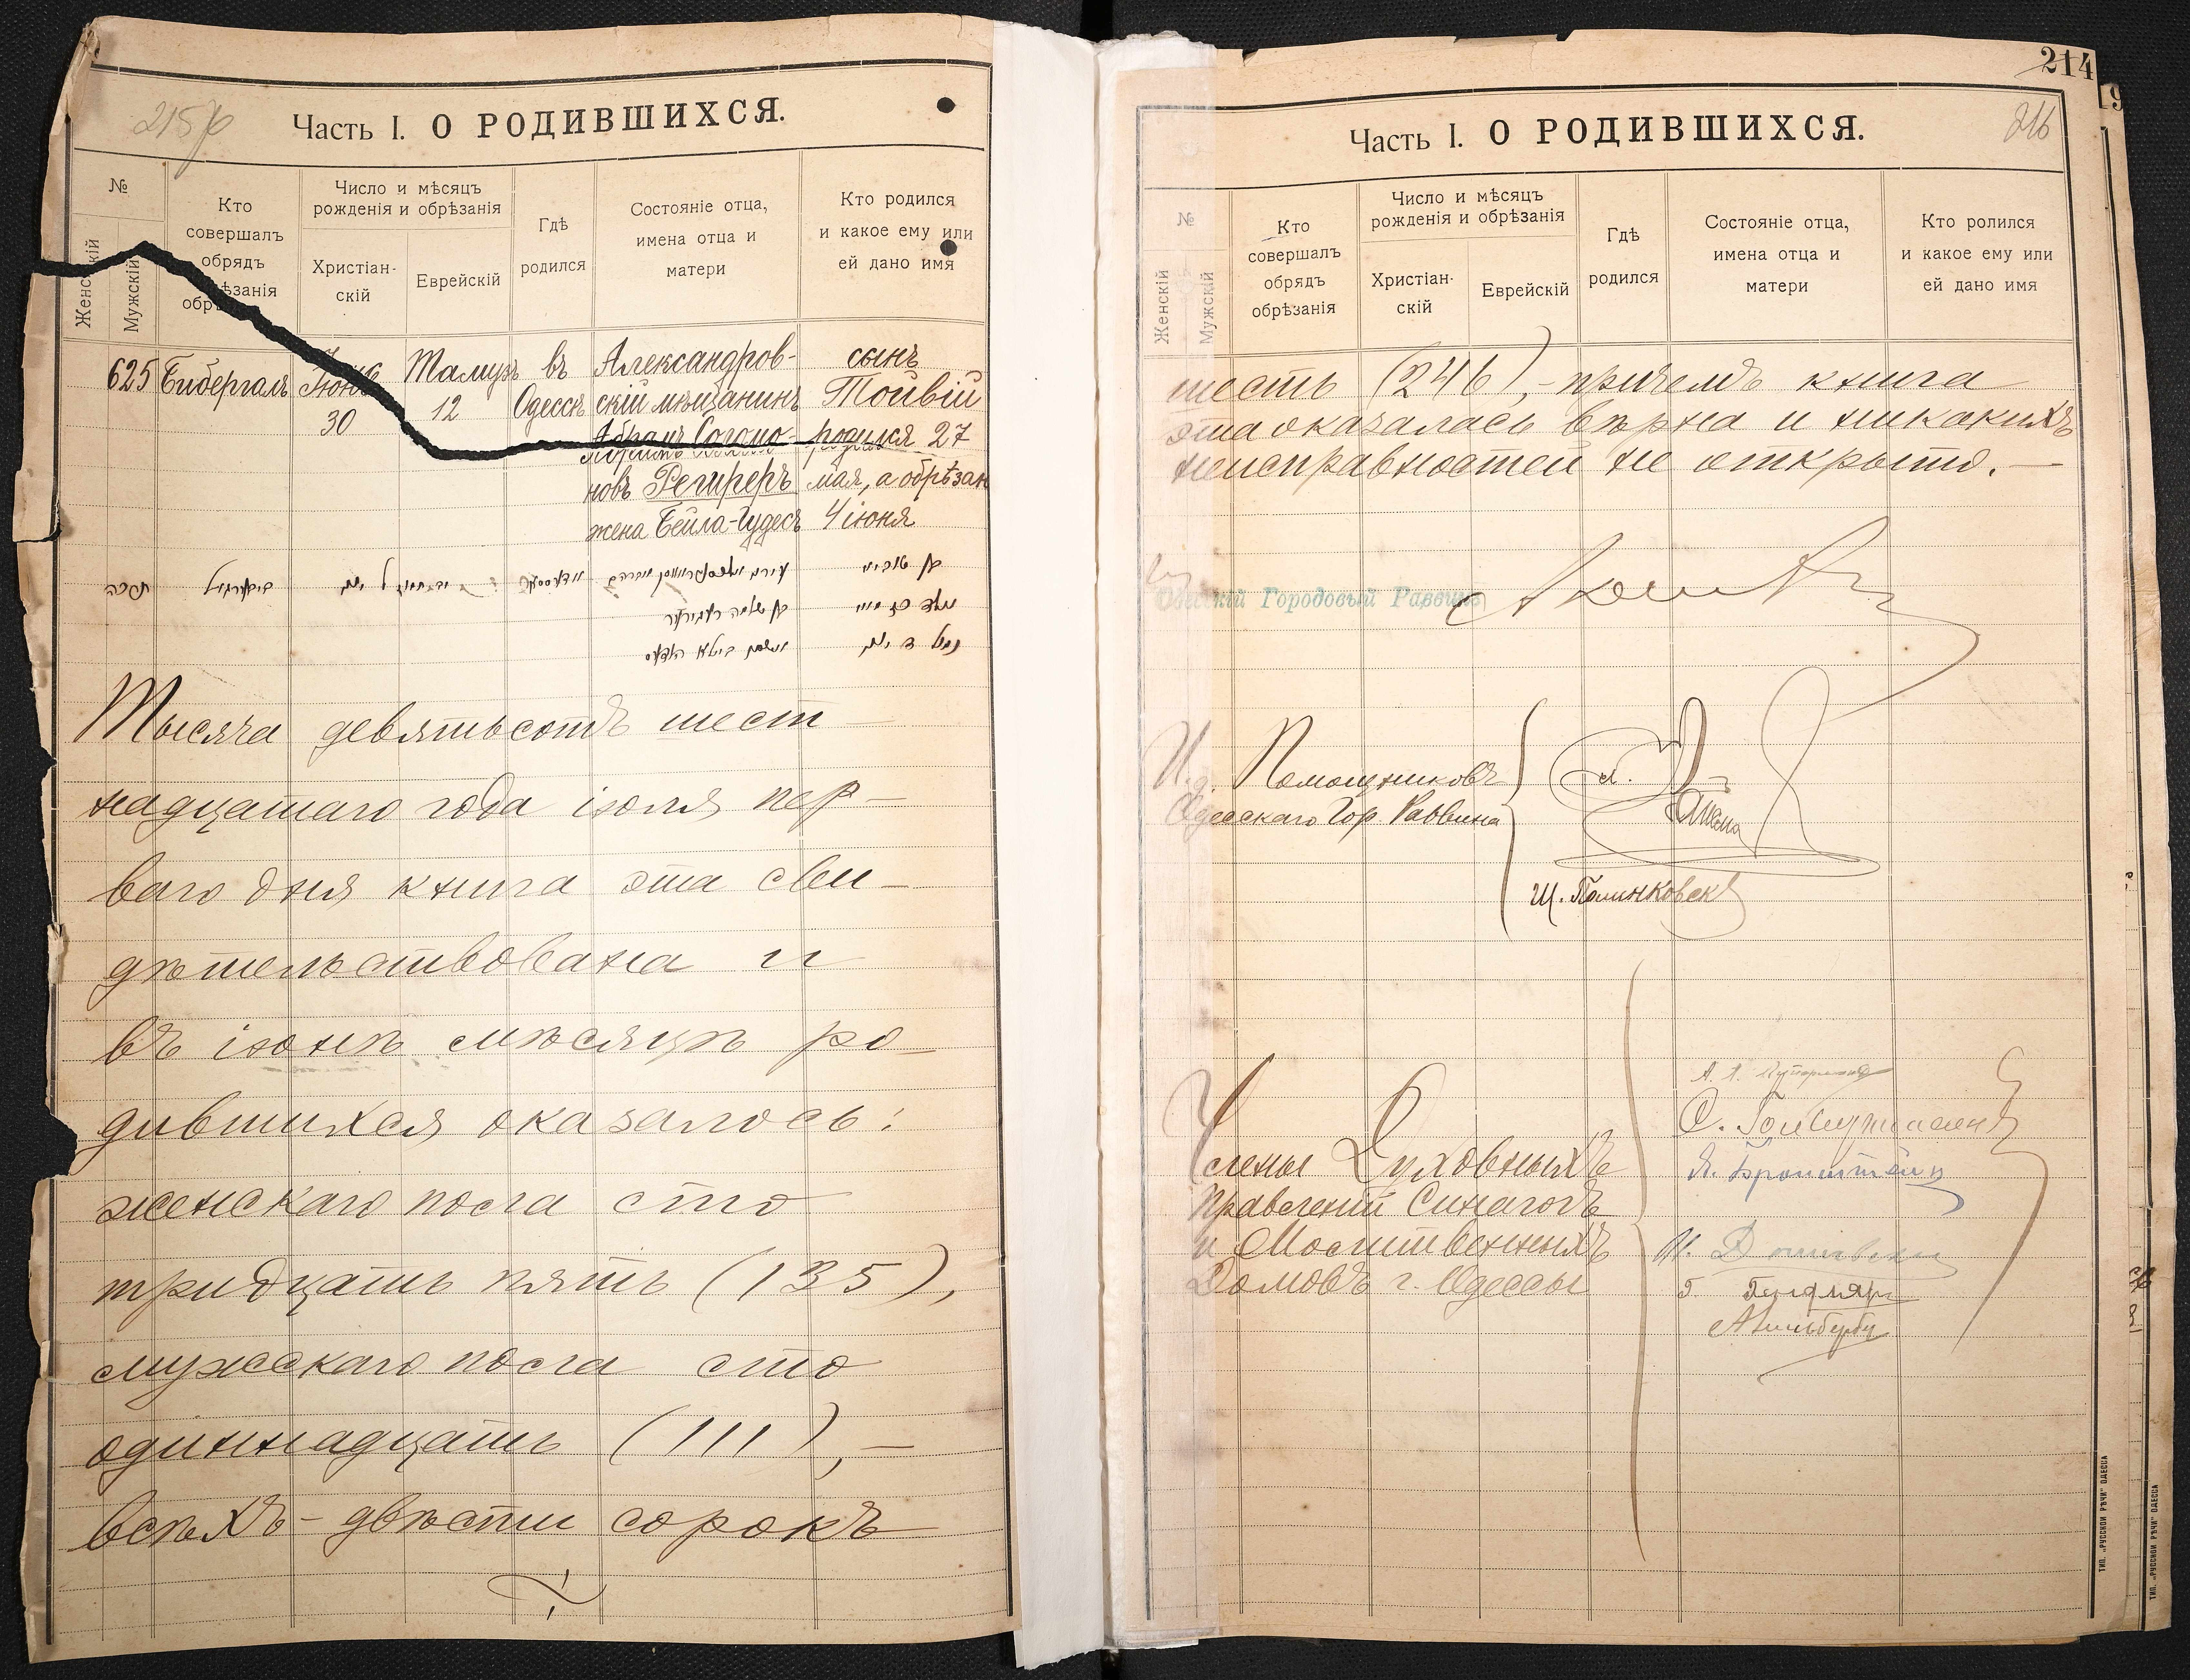 215 р
Часть I. О РОДИВШИХСЯ.
№
Женскій
Мужскій
Кто
совершалъ
обрядъ
обрѣзанія
Число и мѣсяцъ
рожденія и обрѣзанія
Христіан-
скій
Еврейскій
Гдѣ
родился
Состояніе отца,
имена отца и
матери
Кто родился
и какое ему или
ей дано имя
625 Бибергалъ Іюня 30 Тамуз 12 въ Одессѣ
Александров-
скій мѣщанинъ
Абрамъ Соломо-
новъ Регирерь
жена Бейла-Гудесъ
сынъ
Тойвій
родился 27
мая, а обрѣзан
4 іюня
תרכה
ביבערגאל
בן טוביא
נולד כז מאי
נמול ד יוני
בן שלמה רעגירער
ואשתו ביילא הודעס
Тысяча девятьсотъ шест-
надцатаго года іюля пер-
ваго дня книга эта сви-
дѣтельствована и
въ іюнѣ мѣсяцѣ ро-
дившихся оказалось:
женскаго пола сто
тридцать пять (135),
мужескаго пола сто
одиннадцать (111), —
всѣхъ - двѣсти сорокъ
214
216
Часть I. О РОДИВШИХСЯ.
№
Женскій
Мужскій
Кто
совершалъ
обрядъ
обрѣзанія
Число и мѣсяцъ
рожденія и обрѣзанія
Христіан-
скій
Еврейскій
Гдѣ
родился
Состояніе отца,
имена отца и
матери
Кто ролился
и какое ему или
ей дано имя
шесть (246), - причемъ книга
эта оказалась вѣрна и никакихъ
неисправностей не открыто. —
Одесскій Городовый Раввинъ
И.д. Помощниковъ
Одесскаго Гор. Раввина
Члены Духовныхъ
Правленій Синагогъ
и Молитвенныхъ
Домовъ г. Одессы
Я. Бронштейнъ
ТИП. „РУССКОЙ РѢЧИ" ОДЕССА
ТИП. „РУССКОЙ РѢЧИ" ОДЕССА